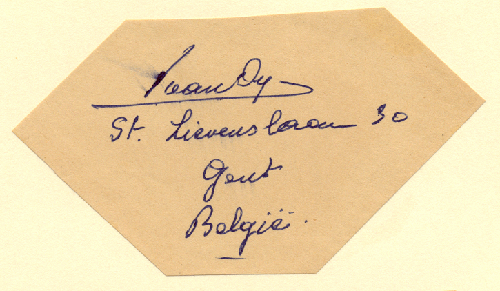 Ivan Dy
St. Lievenslaan 30
Gent
België.